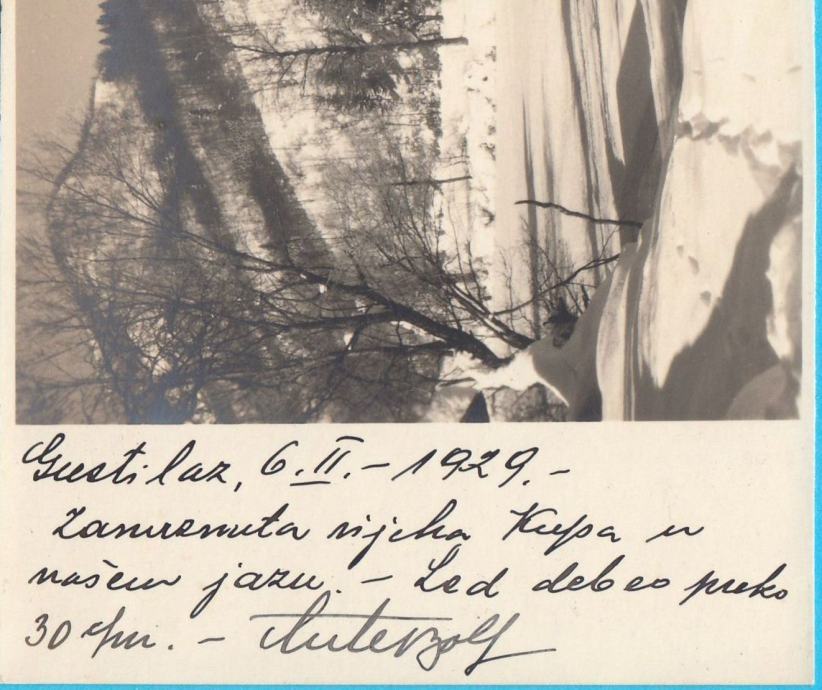 Gusti laz, 6.II.- 1929.-
Zamrznuta rijeka Kupa u
našem jazu. - Led debeo preko
30 c/m. -